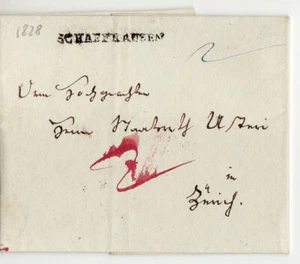 1828
SCHAFHAUSEN
Dem Hochgeachten
Herrn Staatsrath Usteri
in
Zürich.